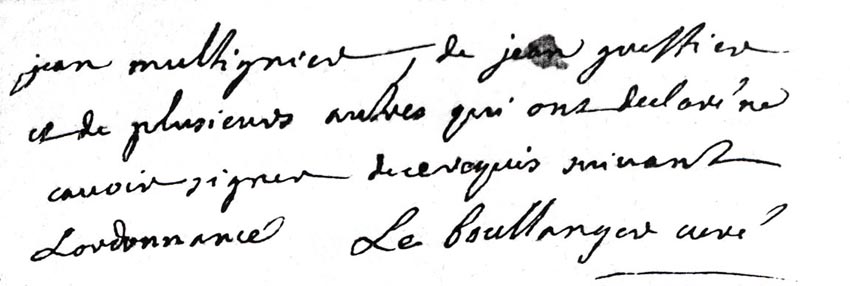 jean multignier, de jean greffier
et de plusieurs autres qui ont declaré ne
cavoir signer de ce requis suivant
Lordonnance Le boullanger curé